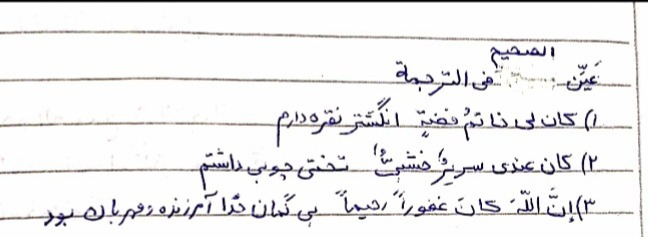 عَيِّن الصحيح في الترجمة
١) كان لي خاتمُ فضةٍ انگشتر نقره دارم
٢) كان عندي سريرٌ خشبيٌّ تختی چوبی داشتم
٣) إنَّ اللّهَ كانَ غفوراً رحيماً بي گمان خدا آمرزنده و مهربان بود